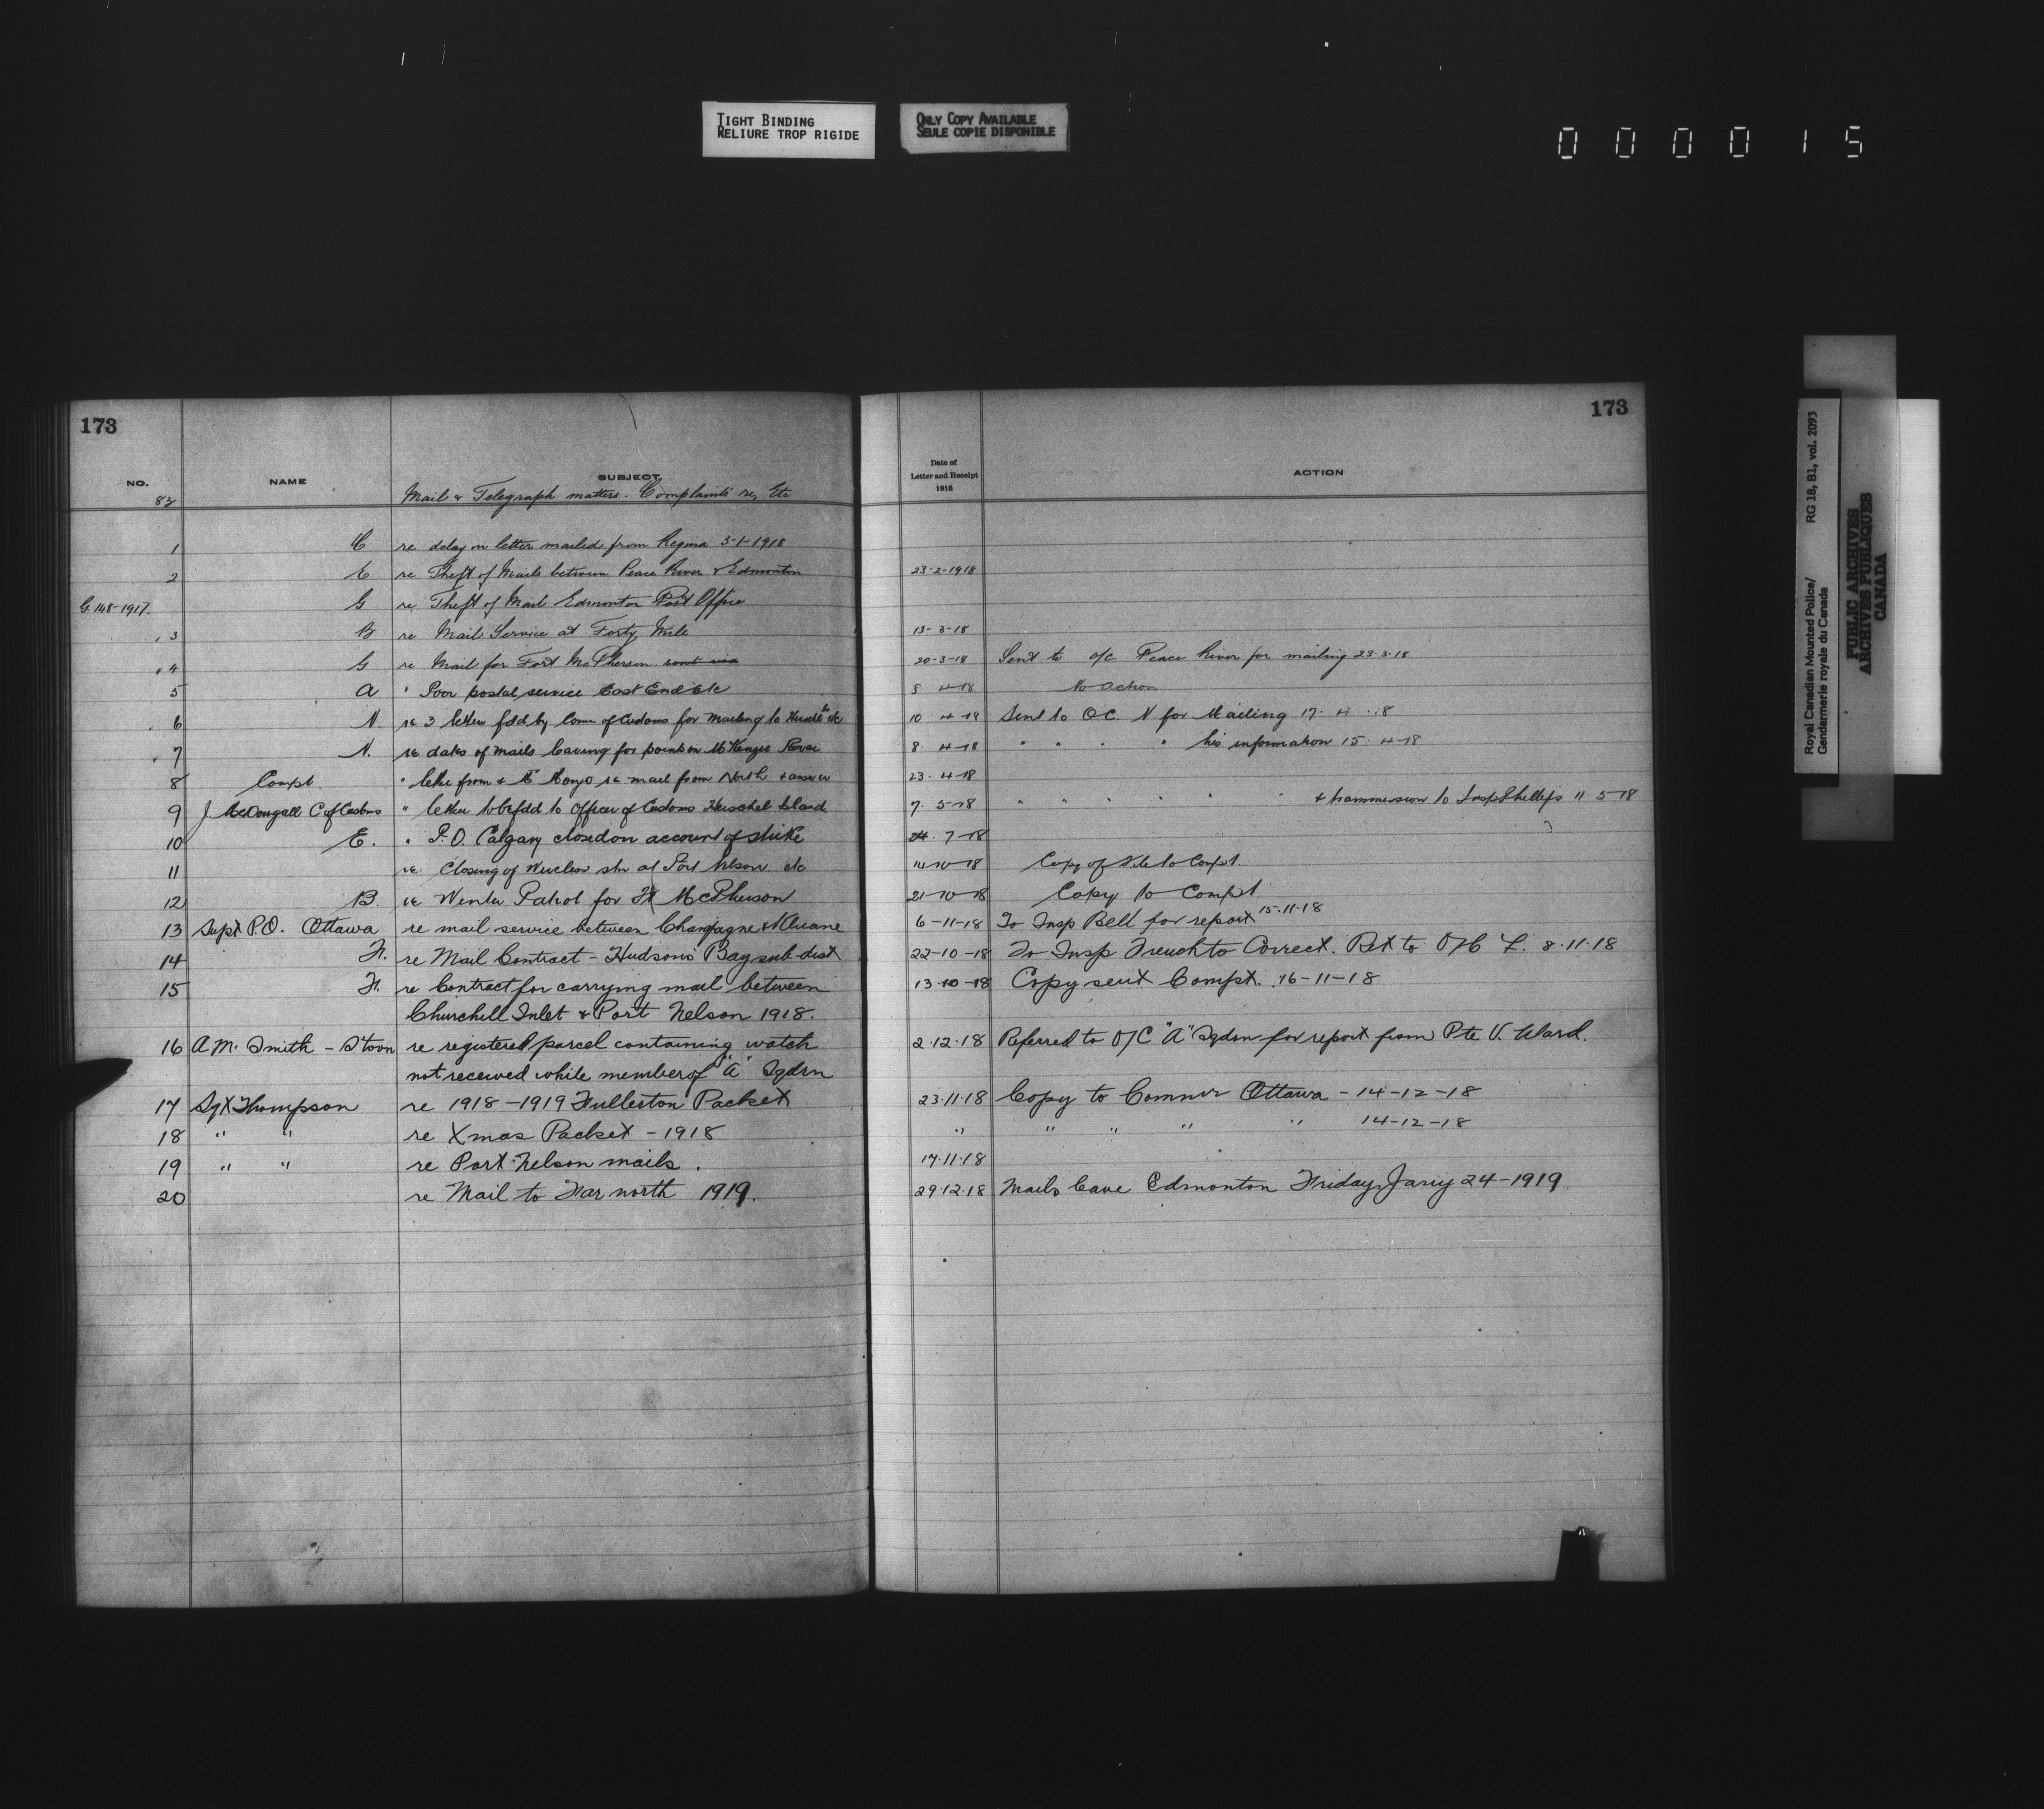 TIGHT BINDING
RELIURE TROP RIGIDE
ONLY COPY AVAILABLE
SEULE COPIE DISPONIBLE
000015
173
173
NO. NAME SUBJECT Date of Letter and Receipt 1918 ACTION
82 Mail & Telegraph matters. Complaints re, Etc
1 re delay on letter mailed from Regina 3-1-1918
2 E re Theft of Mails between Peace River & Edmonton 23-2-1918
G. 148-1917. G re Theft of Mail Edmonton Post Office
3 B re Mail Service at Forty Mile 13-3-18
4 G re Mail for Fort McPherson sent via 20-3-18 Sent to o/c Peace River for mailing 23.3.18
5 A " Poor postal service East End etc 4-18 No action
6 N. re 3 letters fdd by Comr of Customs for mailing to etc 10 4-18 Sent to O.C. N for Mailing 17. 4
7 N. re dates of mails leaving for points on McKenzie River 8. 4-18 " " " " his information 15. 4-18
8 Compt. " letter from re mail from North & answer 23. 4-18
9 J McDougall C of Customs " letter to be fdd to Officer of Customs Herschel Island 7. 5-18 " " " " " " & transmission to Insp Phillips 11. 5-18
10 E. " P.O. Calgary closed on account of strike 24. 7-18
11 re. Closing of Wireless stn at Port Nelson etc 14-10-18 Copy of File to Compt.
12 B. re Winter Patrol for Ft McPherson 21-10-18 Copy to Compt
13 Supt P.O. Ottawa re mail service between Champagne & Kluane 6-11-18 To Insp Bell for report 15.11.18
14 F. re Mail Contract - Hudsons Bay sub-dist 22-10-18 To Insp French to Correct. Ret to 8.11.18
15 F. re Contract for carrying mail between 13-10-18 Copy sent Compt. 16-11-18
Churchill Inlet & Port Nelson 1918.
16 A.M. Smith - S'toon re registered parcel containing watch 2.12.18 Referred to O/C "A" Sqdrn for report from Pte V. Ward.
not received while member of "A" Sqdrn
17 Sgt Thompson re 1918-1919 Fullerton Packet 23.11.18 Copy to Commr Ottawa - 14-12-18
18 " " re Xmas Packet - 1918 " " " " " 14-12-18
19 " " re Port Nelson mails. 17.11.18
20 re Mail to Far north 1919. 29.12.18 Mails leave Edmonton Friday, Jany 24-1919.
Royal Canadian Mounted Police/ RG 18, B1, vol. 2093
Gendarmerie royale du Canada
PUBLIC ARCHIVES
ARCHIVES PUBLIQUES
CANADA